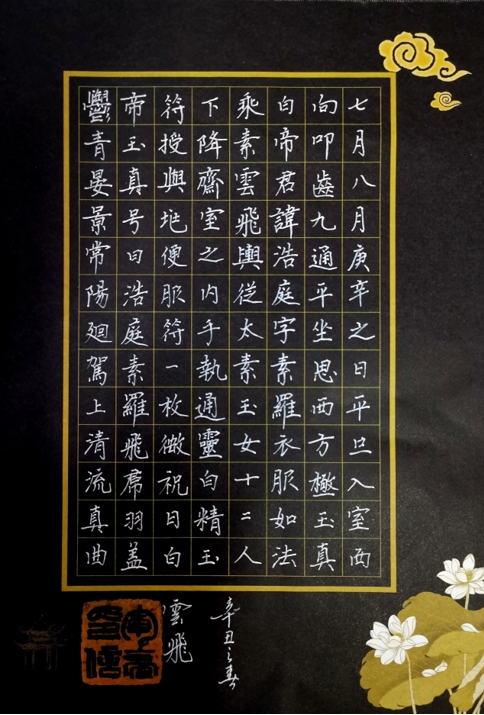 七月八月庚辛之日平旦入室西
向叩齒九通平坐思西方極玉真
白帝君諱浩庭字素羅衣服如法
乘素雲飛輿從太素玉女十二人
下降齋室之内手執通靈白精玉
符授與兆便服符一枚微祝曰白
帝玉真号曰浩庭素羅飛帬羽盖
鬱青晏景常陽廻駕上清流真曲
辛丑之春
雲飛